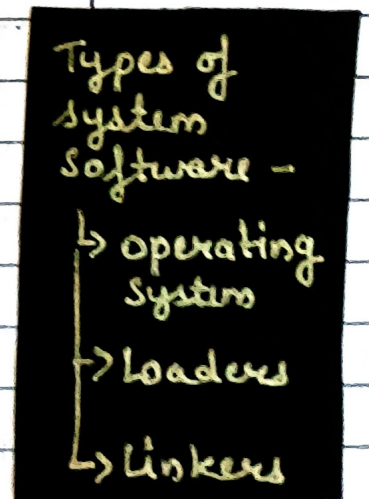 Types of
system
software -
↳ operating
system
→ Loaders
↳ Linkers